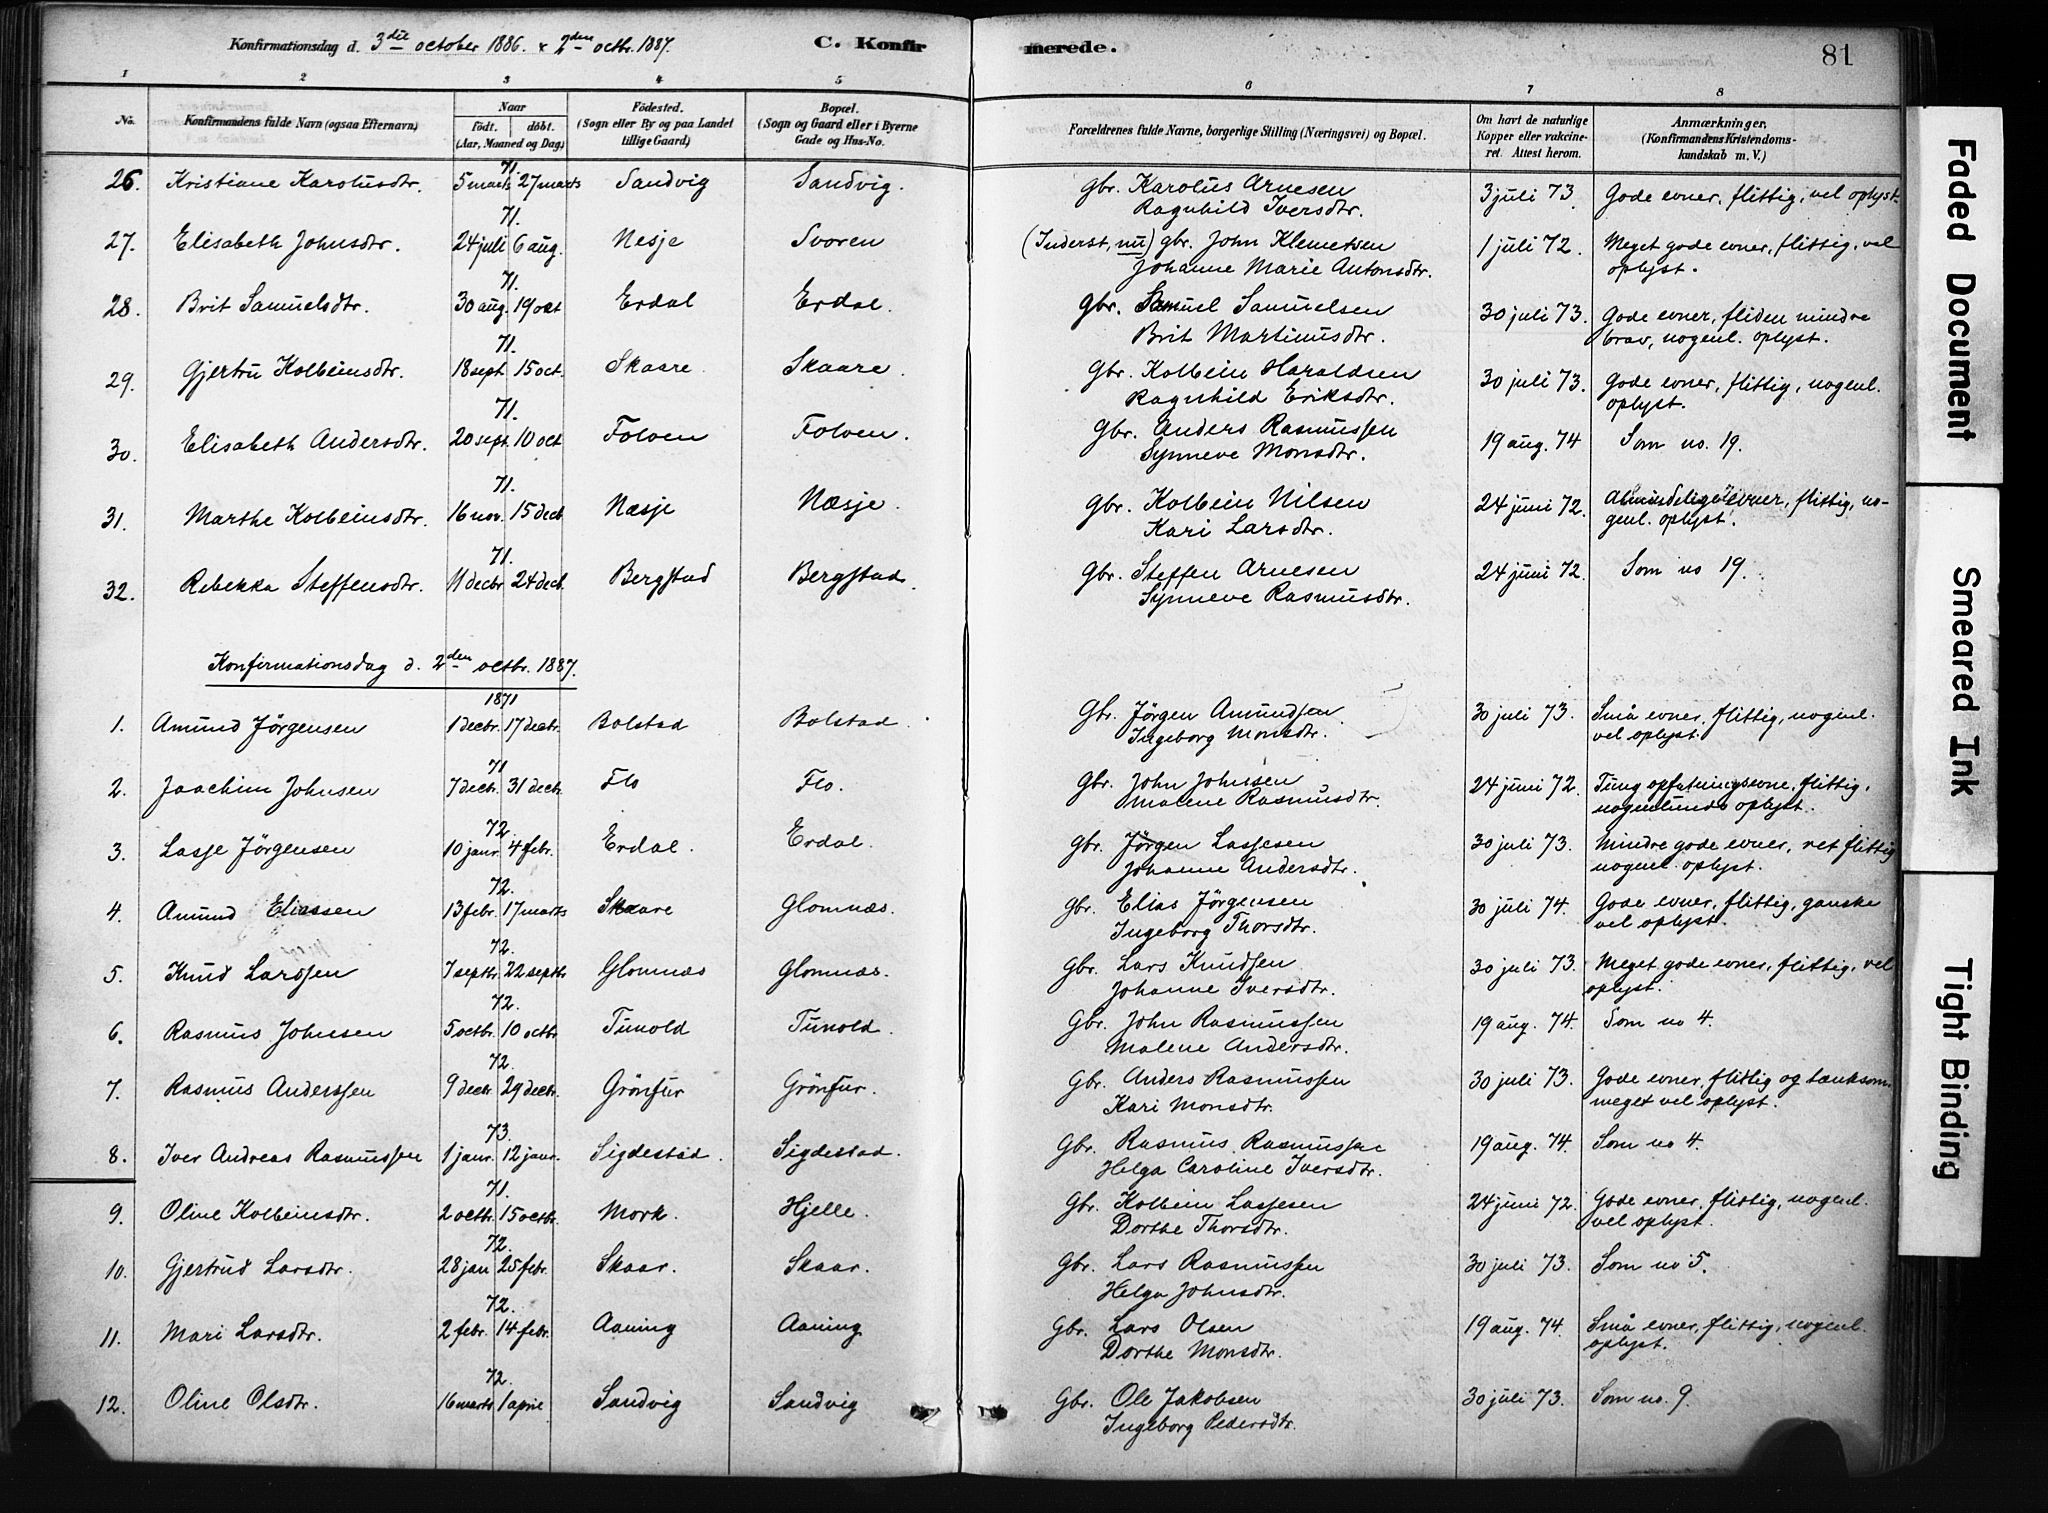 Konfirmationsdag d. 3die october 1886. & 2den octbr. 1887.
C. Konfirmerede.
81
1 2 3 4 5 6 7 8
No. Konfirmandens fulde Navn (ogsaa Efternavn) Naar födt. döbt. (Aar, Maaned og Dag) Födested. (Sogn eller By og paa Landet tillige Gaard) Bopæl. (Sogn og Gaard eller i Byerne Gade og Hus-No. Forældrenes fulde Navne, borgerlige Stilling (Næringsvei) og Bopæl. Om havt de naturlige Kopper eller vakcineret. Attest herom. Anmærkninger, (Konfirmandens Kristendomskundskab m. V.)
71.
26. Kristiane Karolusdtr. 5 marts 27 marts Sandvig Sandvig. Gbr. Karolus Arnesen 3 juli 73. Gode evner, flittig, vel oplyst.
Ragnhild Iversdtr.
71.
27. Elisabeth Johnsdtr. 24 juli 6 aug. Nesje Svoren (Inderst, nu) gbr. John Klemetsen 1 juli 72. Meget gode evner, flittig, vel
Johanne Marie Antonsdtr. oplyst.
71.
28. Brit Samuelsdtr. 30 aug. 19 oct Erdal Erdal. Gbr. Samuel Samuelsen 30 juli 73. Gode evner, fliden mindre
Brit Martinusdtr. brav, nogenl. oplyst.
71.
29. Gjertru Kolbeinsdtr. 18 sept. 15 oct. Skaare. Skaare. Gbr. Kolbein Haraldsen 30 juli 73. Gode evner, flittig, nogenl.
Ragnhild Eriksdtr. oplyst.
71.
30. Elisabeth Andersdtr. 20 sept. 10 oct. Folven Folven. Gbr. Anders Rasmussen 19 aug. 74 Som no. 19.
Synneve Monsdtr.
71.
31. Marthe Kolbeinsdtr. 16 nov. 15 decb Næsje Næsje. Gbr. Kolbein Nilsen 24 juni 72. Almindelige evner, flittig, no-
Kari Larsdtr. genl. oplyst.
71.
32. Rebekka Steffensdtr. 11 decbr 24 decb Bergstad Bergstad. Gbr. Steffen Arnesen 24 juni 72. Som no 19.
Synneve Rasmusdtr.
Konfirmationsdag d. 2den octbr. 1887.
1871
1. Amund Jörgensen 1 decbr. 17 decbr. Bolstad Bolstad. Gbr. Jörgen Amundsen 30 juli 73. Små evner, flittig, nogenl.
Ingeborg Monsdtr. vel oplyst.
71
2. Joachim Johnsen 7 decbr. 31 decbr. Flo Flo. Gbr. John Johnsen 24 juni 72. Tung opfatningsevne, flittig,
Malene Rasmusdtr. nogenlunde oplyst.
72.
3. Lasje Jörgensen 10 janr. 4 febr. Erdal. Erdal. Gbr. Jörgen Lasjesen 30 juli 73. Mindre gode evner, ret flittig
Johanne Andersdtr. nogenl. oplyst.
72.
4. Amund Eliassen 13 febr. 17 marts Skaare Glomnæs. Gbr. Elias Jörgensen 30 juli 74. Gode evner, flittig, ganske
Ingeborg Thorsdtr. vel oplyst.
72.
5. Knud Larssen 7 septbr. 22 septbr Glomnæs Glomnæs. Gbr. Lars Knudsen 30 juli 73. Meget gode evner, flittig, vel
Johanne Iversdtr. oplyst.
72.
6. Rasmus Johnsen 5 octbr. 10 octbr. Tunold Tunold. Gbr. John Rasmussen 19 aug. 74. Som no 4.
Malene Andersdtr.
72.
7. Rasmus Anderssen 9 decbr. 29 decbr. Grönfur Grönfur. Gbr. Anders Rasmussen 30 juli 73. Gode evner, flittig og tænksom.
Kari Monsdtr. meget vel oplyst.
73.
8. Iver Andreas Rasmussen 1 janr. 12 janr. Sigdestad. Sigdestad. Gbr. Rasmus Rasmussen 19 aug. 74. Som no 4.
Helga Caroline Iversdtr.
71.
9. Oline Kolbeinsdtr. 2 octbr. 15 octbr. Mork. Hjelle. Gbr. Kolbein Lasjesen 24 juni 72. Gode evner, flittig, nogenl.
Dorthe Thorsdtr. vel oplyst.
72.
10. Gjertrud Larsdtr. 28 jan 25 febr. Skaar. Skaar. Gbr. Lars Rasmussen 30 juli 73. Som no 5.
Helga Johnsdtr.
72.
11. Mari Larsdtr. 2 febr. 14 febr. Aaning Aaning Gbr. Lars Olsen 19 aug. 74. Små evner, flittig, nogenl.
Dorthe Monsdtr. oplyst.
72.
12. Oline Olsdtr. 16 marts 1 april Sandvig Sandvig Gbr. Ole Jakobsen 30 juli 73. Som no. 9.
Ingeborg Pedersdtr.
Faded Document
Smeared Ink
Tight Binding